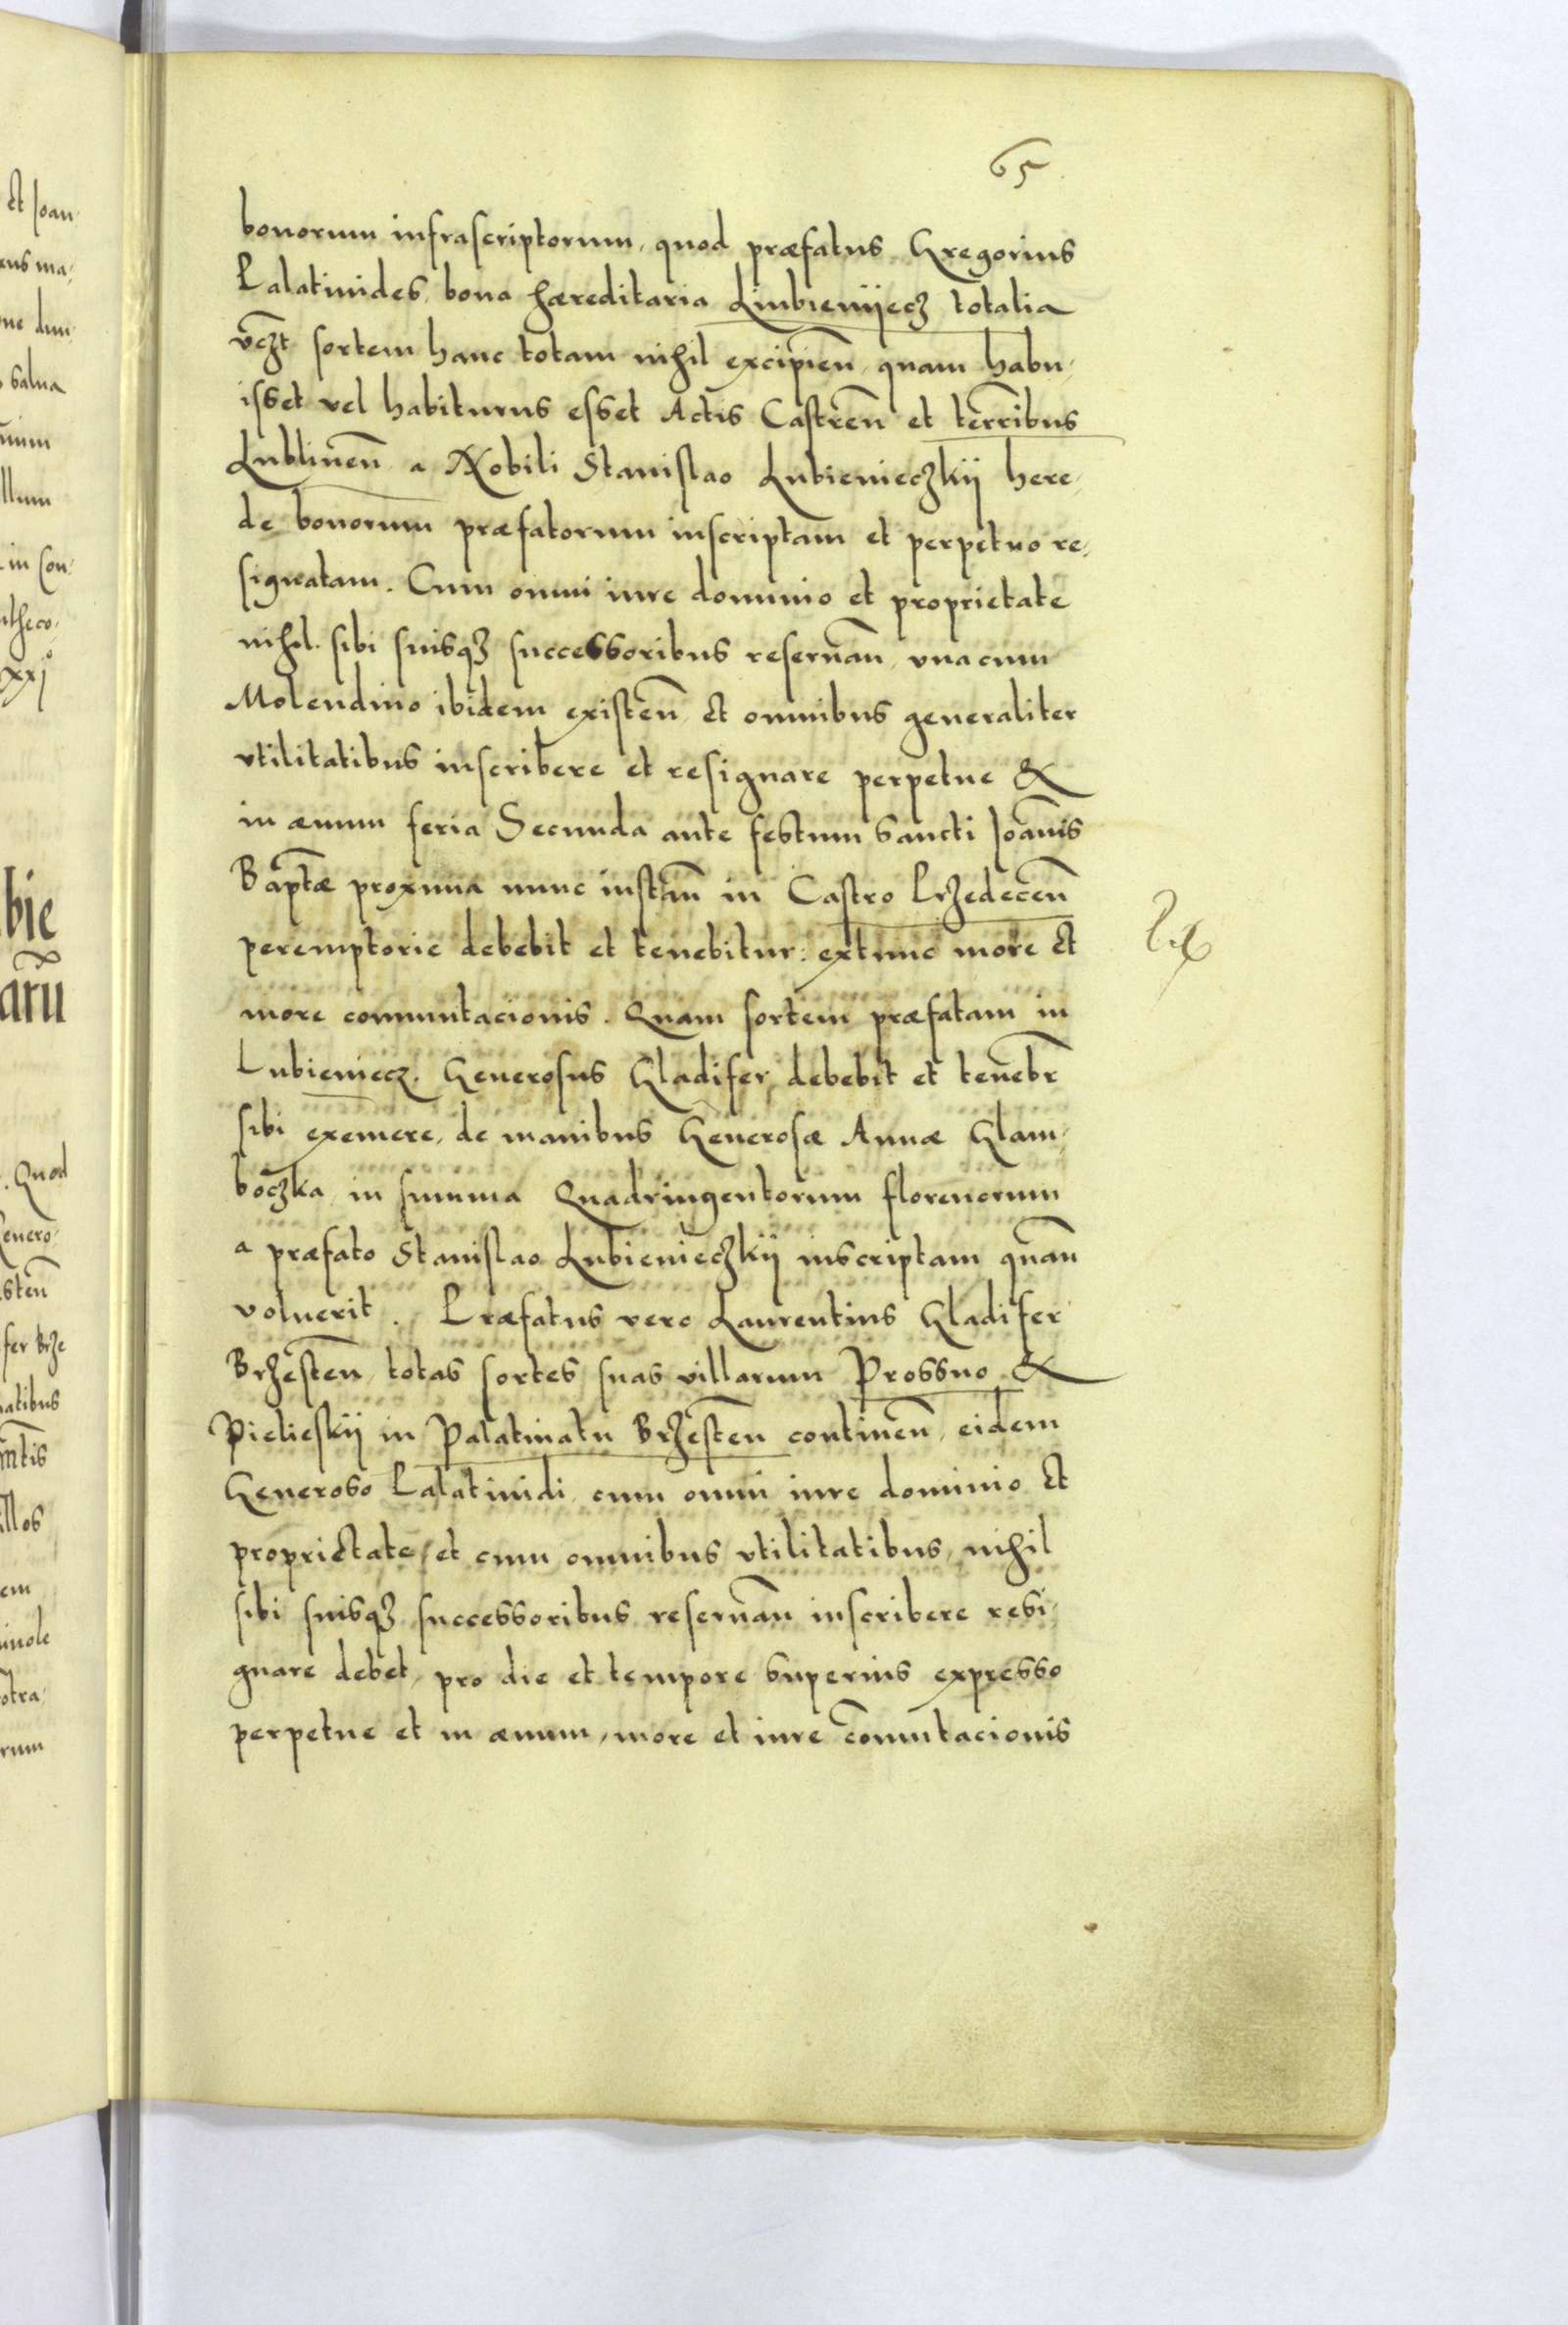 65
bonorum infrascriptorum, quod præfatus Gregorius
Palatinides, bona hæreditaria Liubienijecz totalia
vczt sortem hanc totam nihil excipien̄, quam habu,
isset vel habiturus esset Actis Castren̄ et terribus
Lublinen̄ a Nobili Stanislao Lubienieczkij here,
de bonorum præfatorum inscriptam et perpetuo re,
signatam. Cum omni iure dominio et proprietate
nihil sibi suisqꝫ successoribus reseruan̄, vnacum
Molendino ibidem existen̄, et omnibus generaliter
vtilitatibus inscribere et resignare perpetue &
in æuum feria Secunda ante festum Sancti Joānis
Baptæ proxima nunc instan̄ in Castro Przedecen̄
peremptorie debebit et tenebitur: extunc more et
more commutacionis. Quam sortem præfatam in
Lubieniecz. Generosus Gladifer, debebit et tenebr
sibi exemere, de manibus Generosæ Annæ Glam,
boczka, in summa Quadringentorum florenorum
a præfato Stanislao Lubienieczkij inscriptam quan̄
voluerit. Præfatus vero Laurentius Gladifer
Brzesten̄ totas sortes suas villarum Prossno &
Pielieskij in Palatinatu Brzesten̄ continen̄, eidem
Generoso Palatinidi, cum omni iure dominio et
proprietate, et cum omnibus vtilitatibus, nihil
sibi suisqꝫ successoribus reseruan̄ inscribere resi,
gnare debet, pro die et tempore superius expresso
perpetue et in æuum, more et iure com̄utacionis
et Joan,
ens ma,
salua
llum
in Con,
xxj
bie
arū
. Quod
Genero,
sten̄
fer Brze
atibus
llos
em
inole
otra,
rum